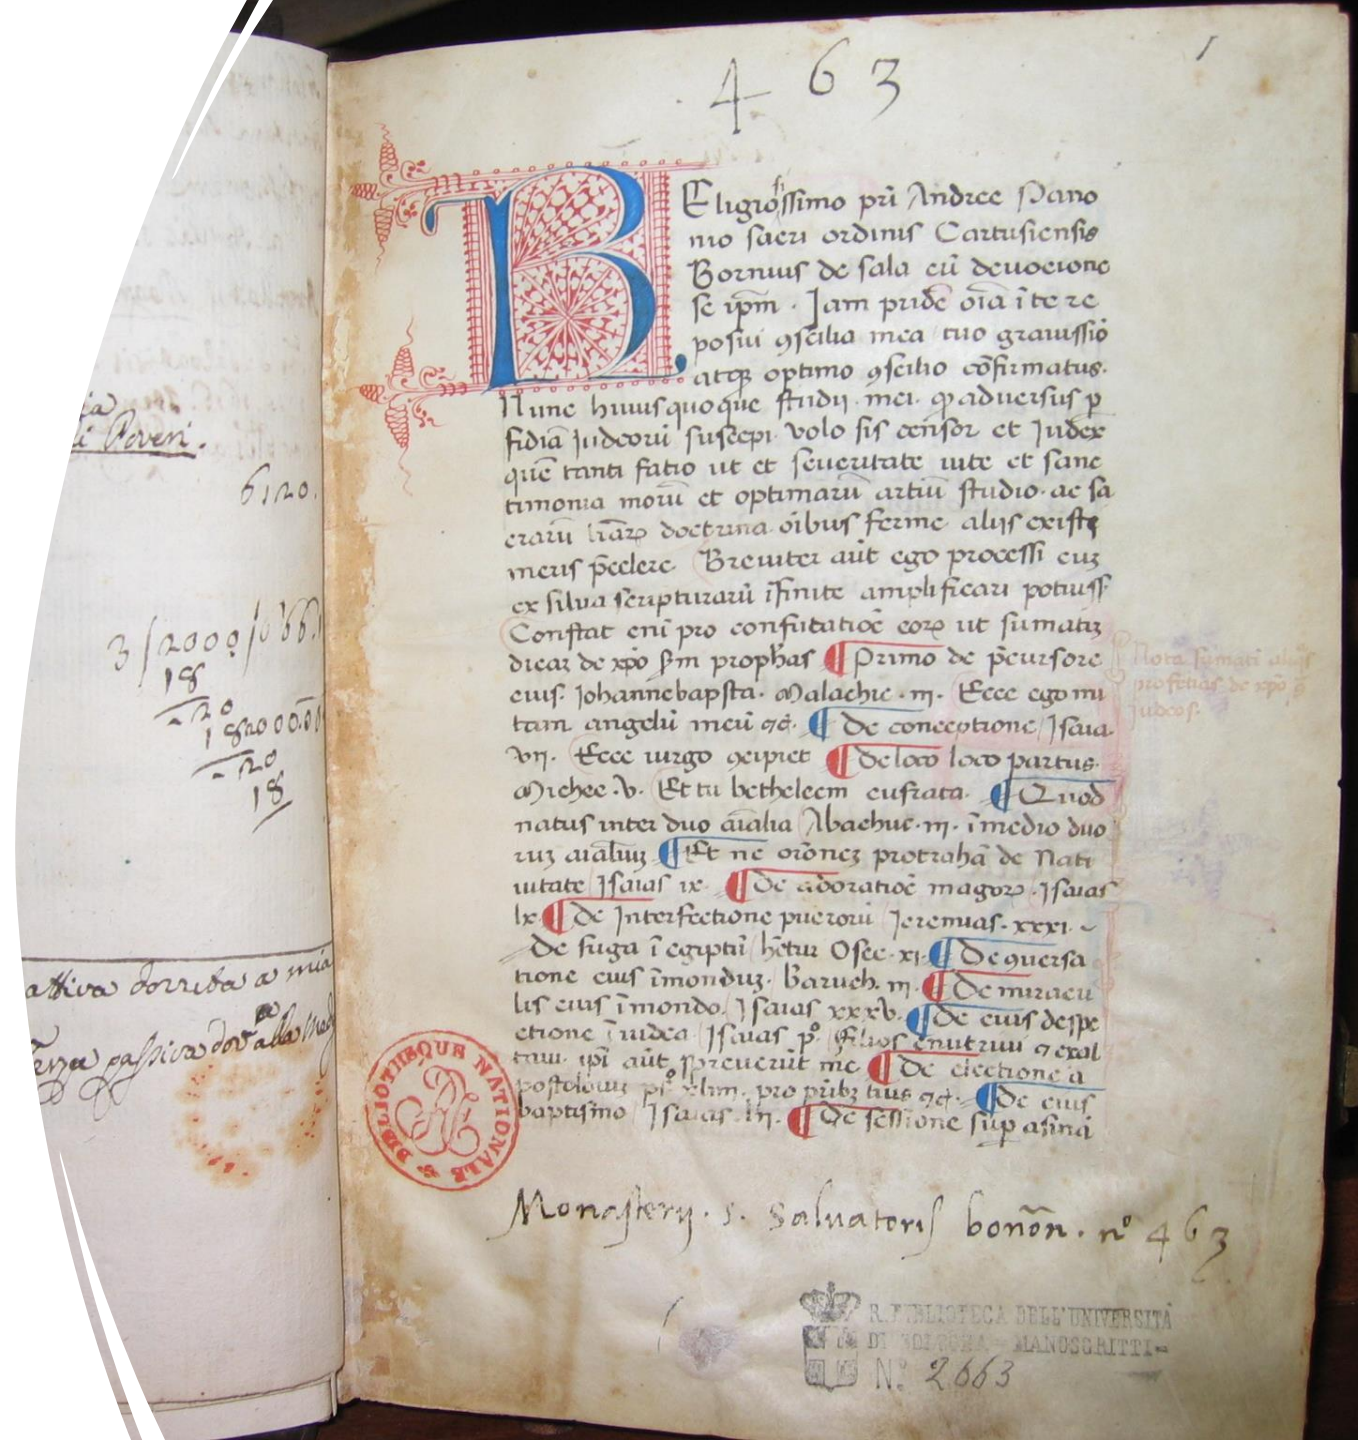 ia
li Poveri.
6120.
3/2000/0666.
18
-20
18 2000.00
-20
18
attiva dorreba a mia
passiva dov alla
4 6 3
1
B Eligiosissimo pri Andree Nano
nio sacri ordinis Cartusiensis
Bornius de sala cū deuocione
se ipm . Iam pridē oīa ī te re
posui ꝯscilia mea tuo grauissiō
atqꝫ optimo ꝯscilio cōfirmatus.
Nunc huius quoque studij mei. ꝙ adversus ꝑ
fidiā Iudeorū suscepi volo sis censor et Iudex
quē tanti fatio ut et seueritate uite et sanc
timonia morū et optimarū artiū studio ac sa
crarū lrārꝝ doctrina oībus ferme alijs existi
meris p̄cellere Breuiter aūt ego processi cuꝫ
ex silua scripturarū īfinite amplificari potuiss
Constat enī pro confutatiōe eorꝝ ut sumatiꝫ
dicaꝫ de xp̄o ẜm prophas ¶ Primo de p̄cursore
eius. Iohanne bapsta. Malachie .iii. Ecce ego mi
tam angelū meū ⁊c̄. ¶ De conceptione Isaia
vii. Ecce uirgo ꝯcipiet ¶ De loco loco partus.
Michee .v. Et tu bethelecm eufrata. ¶ Quod
natus inter duo aīalia Abachuc .iii. ī medio duo
ruꝫ aīaliuꝫ ¶ Et ne orōneꝫ protrahā de Nati
uitate Isaias ix. ¶ De adoratiōe magorꝝ . Isaias
lx. ¶ De Interfectione puerorū Ieremias. xxxi.
De fuga ī egiptū hētur Osee .xi. ¶ De ꝯuersa
tione eius ī monduꝫ. Baruch. iii. ¶ De miracu
lis eius ī mondo. Isaias xxxv. ¶ De eius despe
ctione ī iudea Isaias pº. filios enutriui ⁊ exal
taui. ipī aūt spreuerūt me ¶ De electione a
postolorū psº xliiii. pro p̄ribꝫ tuis ⁊c̄. ¶ De eius
baptismo Isaias. lii. ¶ De sessione sup̄ asinā
Nota sumati aliqˢ
profetias de xp̄o ꝯ̄
iudeos.
BIBLIOTHEQUE NATIONALE
Monasterij . s. Salvatoris bonōn. nº 463
R. BIBLIOTECA DELL'UNIVERSITÀ
DI BOLOGNA - MANOSCRITTI -
N.º 2663